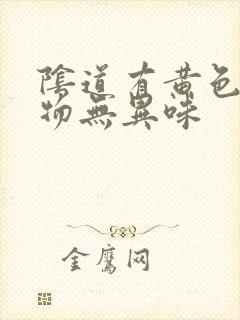 陰道有黄色
物無異味
金鷹网